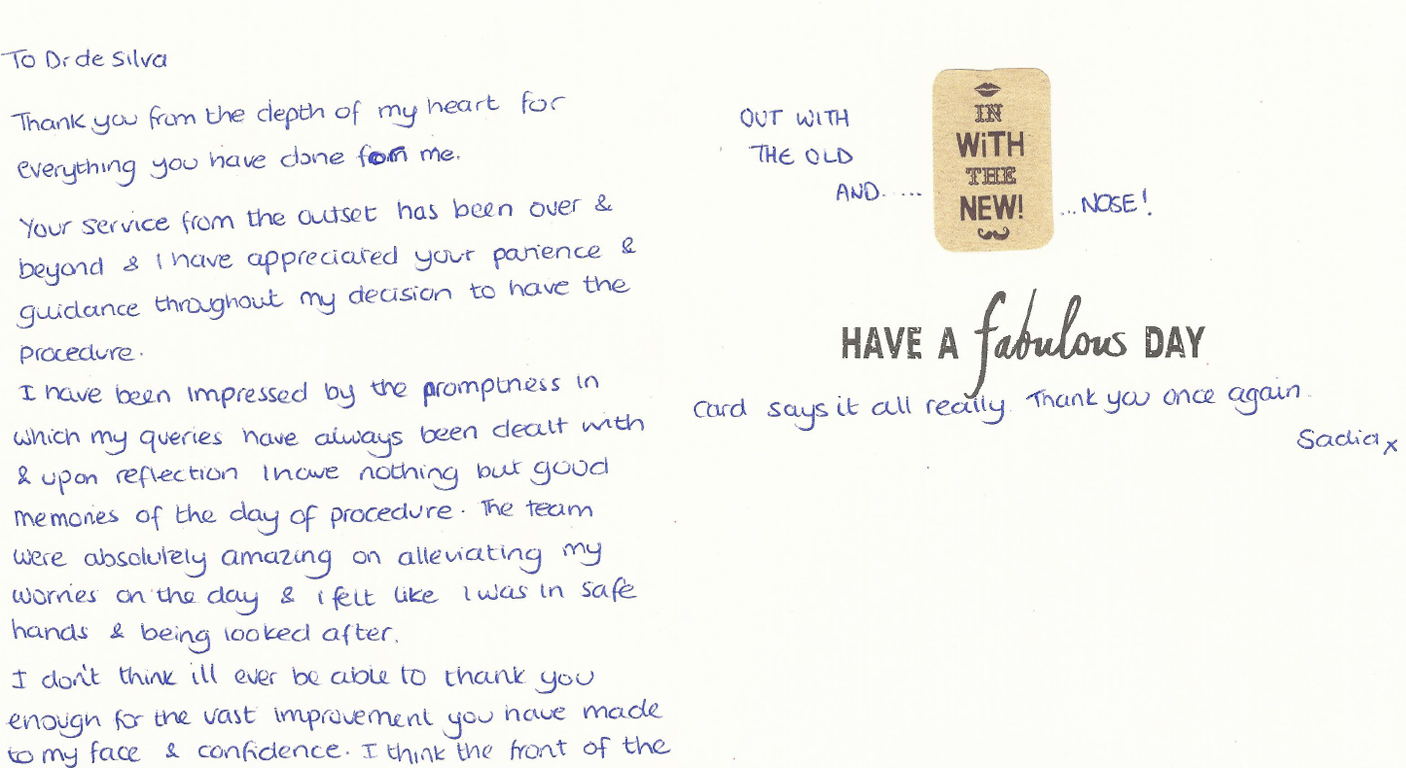 To Dr de Silva
Thank you from the depth of my heart for
everything you have done for me.
Your service from the outset has been over &
beyond & I have appreciated your patience &
guidance throughout my decision to have the
procedure.
I have been impressed by the promptness in
which my queries have always been dealt with
& upon reflection I have nothing but good
memories of the day of procedure. The team
were absolutely amazing on alleviating my
worries on the day & i felt like I was in safe
hands & being looked after.
I don't think ill ever be able to thank you
enough for the vast improvement you have made
to my face & confidence. I think the front of the
OUT WITH
THE OLD
AND.....
IN
WiTH
THE
NEW!
...NOSE!
HAVE A fabulous DAY
Card says it all really. Thank you once again.
Sadia x